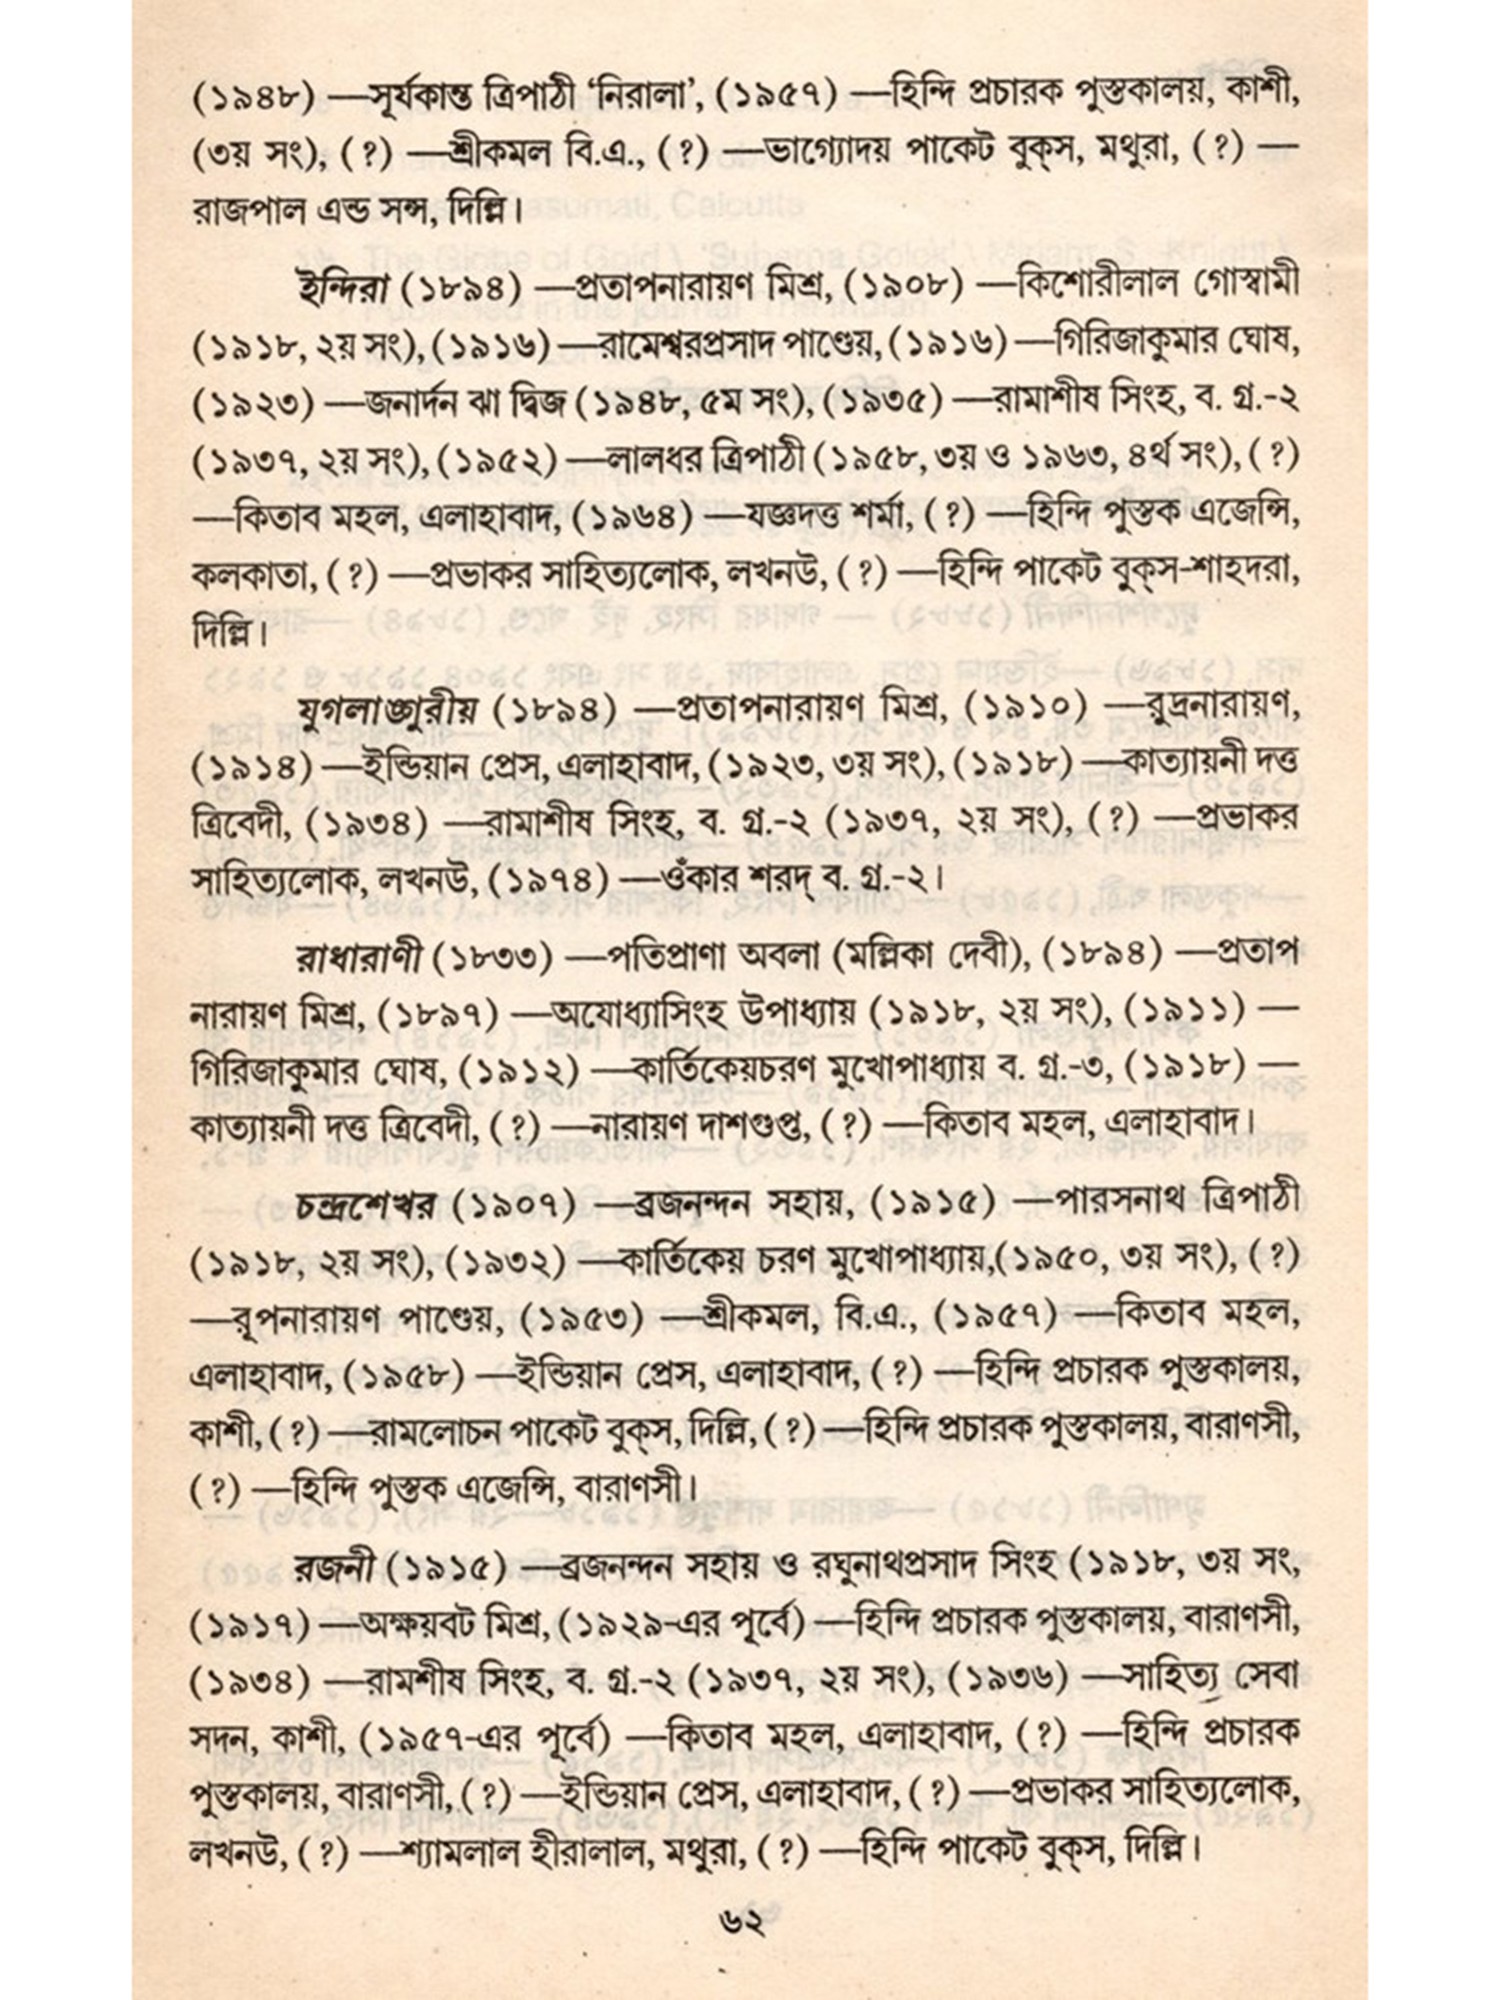 (১৯৪৮) —সূর্যকান্ত ত্রিপাঠী ‘নিরালা’, (১৯৫৭) —হিন্দি প্রচারক পুস্তকালয়, কাশী,
(৩য় সং), (?) —শ্রীকমল বি.এ., (?) —ভাগ্যোদয় পাকেট বুক্‌স, মথুরা, (?) —
রাজপাল এন্ড সন্স, দিল্লি।
ইন্দিরা (১৮৯৪) —প্রতাপনারায়ণ মিশ্র, (১৯০৮) —কিশোরীলাল গোস্বামী
(১৯১৮, ২য় সং), (১৯১৬) —রামেশ্বরপ্রসাদ পাণ্ডেয়, (১৯১৬) —গিরিজাকুমার ঘোষ,
(১৯২৩) —জনার্দন ঝা দ্বিজ (১৯৪৮, ৫ম সং), (১৯৩৫) —রামাশীষ সিংহ, ব. গ্র.-২
(১৯৩৭, ২য় সং), (১৯৫২) —লালধর ত্রিপাঠী (১৯৫৮, ৩য় ও ১৯৬৩, ৪র্থ সং), (?)
—কিতাব মহল, এলাহাবাদ, (১৯৬৪) —যজ্ঞদত্ত শর্মা, (?) —হিন্দি পুস্তক এজেন্সি,
কলকাতা, (?) —প্রভাকর সাহিত্যলোক, লখনউ, (?) —হিন্দি পাকেট বুক্‌স-শাহদরা,
দিল্লি।
যুগলাঙ্গুরীয় (১৮৯৪) —প্রতাপনারায়ণ মিশ্র, (১৯১০) —রুদ্রনারায়ণ,
(১৯১৪) —ইন্ডিয়ান প্রেস, এলাহাবাদ, (১৯২৩, ৩য় সং), (১৯১৮) —কাত্যায়নী দত্ত
ত্রিবেদী, (১৯৩৪) —রামাশীষ সিংহ, ব. গ্র.-২ (১৯৩৭, ২য় সং), (?) —প্রভাকর
সাহিত্যলোক, লখনউ, (১৯৭৪) —ওঁকার শরদ্ ব. গ্র.-২।
রাধারাণী (১৮৩৩) —পতিপ্রাণা অবলা (মল্লিকা দেবী), (১৮৯৪) —প্রতাপ
নারায়ণ মিশ্র, (১৮৯৭) —অযোধ্যাসিংহ উপাধ্যায় (১৯১৮, ২য় সং), (১৯১১) —
গিরিজাকুমার ঘোষ, (১৯১২) —কার্তিকেয়চরণ মুখোপাধ্যায় ব. গ্র.-৩, (১৯১৮) —
কাত্যায়নী দত্ত ত্রিবেদী, (?) —নারায়ণ দাশগুপ্ত, (?) —কিতাব মহল, এলাহাবাদ।
চন্দ্রশেখর (১৯০৭) —ব্রজনন্দন সহায়, (১৯১৫) —পারসনাথ ত্রিপাঠী
(১৯১৮, ২য় সং), (১৯৩২) —কার্তিকেয় চরণ মুখোপাধ্যায়,(১৯৫০, ৩য় সং), (?)
—রূপনারায়ণ পাণ্ডেয়, (১৯৫৩) —শ্রীকমল, বি.এ., (১৯৫৭) —কিতাব মহল,
এলাহাবাদ, (১৯৫৮) —ইন্ডিয়ান প্রেস, এলাহাবাদ, (?) —হিন্দি প্রচারক পুস্তকালয়,
কাশী, (?) —রামলোচন পাকেট বুক্‌স, দিল্লি, (?) —হিন্দি প্রচারক পুস্তকালয়, বারাণসী,
(?) —হিন্দি পুস্তক এজেন্সি, বারাণসী।
রজনী (১৯১৫) —ব্রজনন্দন সহায় ও রঘুনাথপ্রসাদ সিংহ (১৯১৮, ৩য় সং,
(১৯১৭) —অক্ষয়বট মিশ্র, (১৯২৯-এর পূর্বে) —হিন্দি প্রচারক পুস্তকালয়, বারাণসী,
(১৯৩৪) —রামশীষ সিংহ, ব. গ্র.-২ (১৯৩৭, ২য় সং), (১৯৩৬) —সাহিত্য সেবা
সদন, কাশী, (১৯৫৭-এর পূর্বে) —কিতাব মহল, এলাহাবাদ, (?) —হিন্দি প্রচারক
পুস্তকালয়, বারাণসী, (?) —ইন্ডিয়ান প্রেস, এলাহাবাদ, (?) —প্রভাকর সাহিত্যলোক,
লখনউ, (?) —শ্যামলাল হীরালাল, মথুরা, (?) —হিন্দি পাকেট বুক্‌স, দিল্লি।
৬২